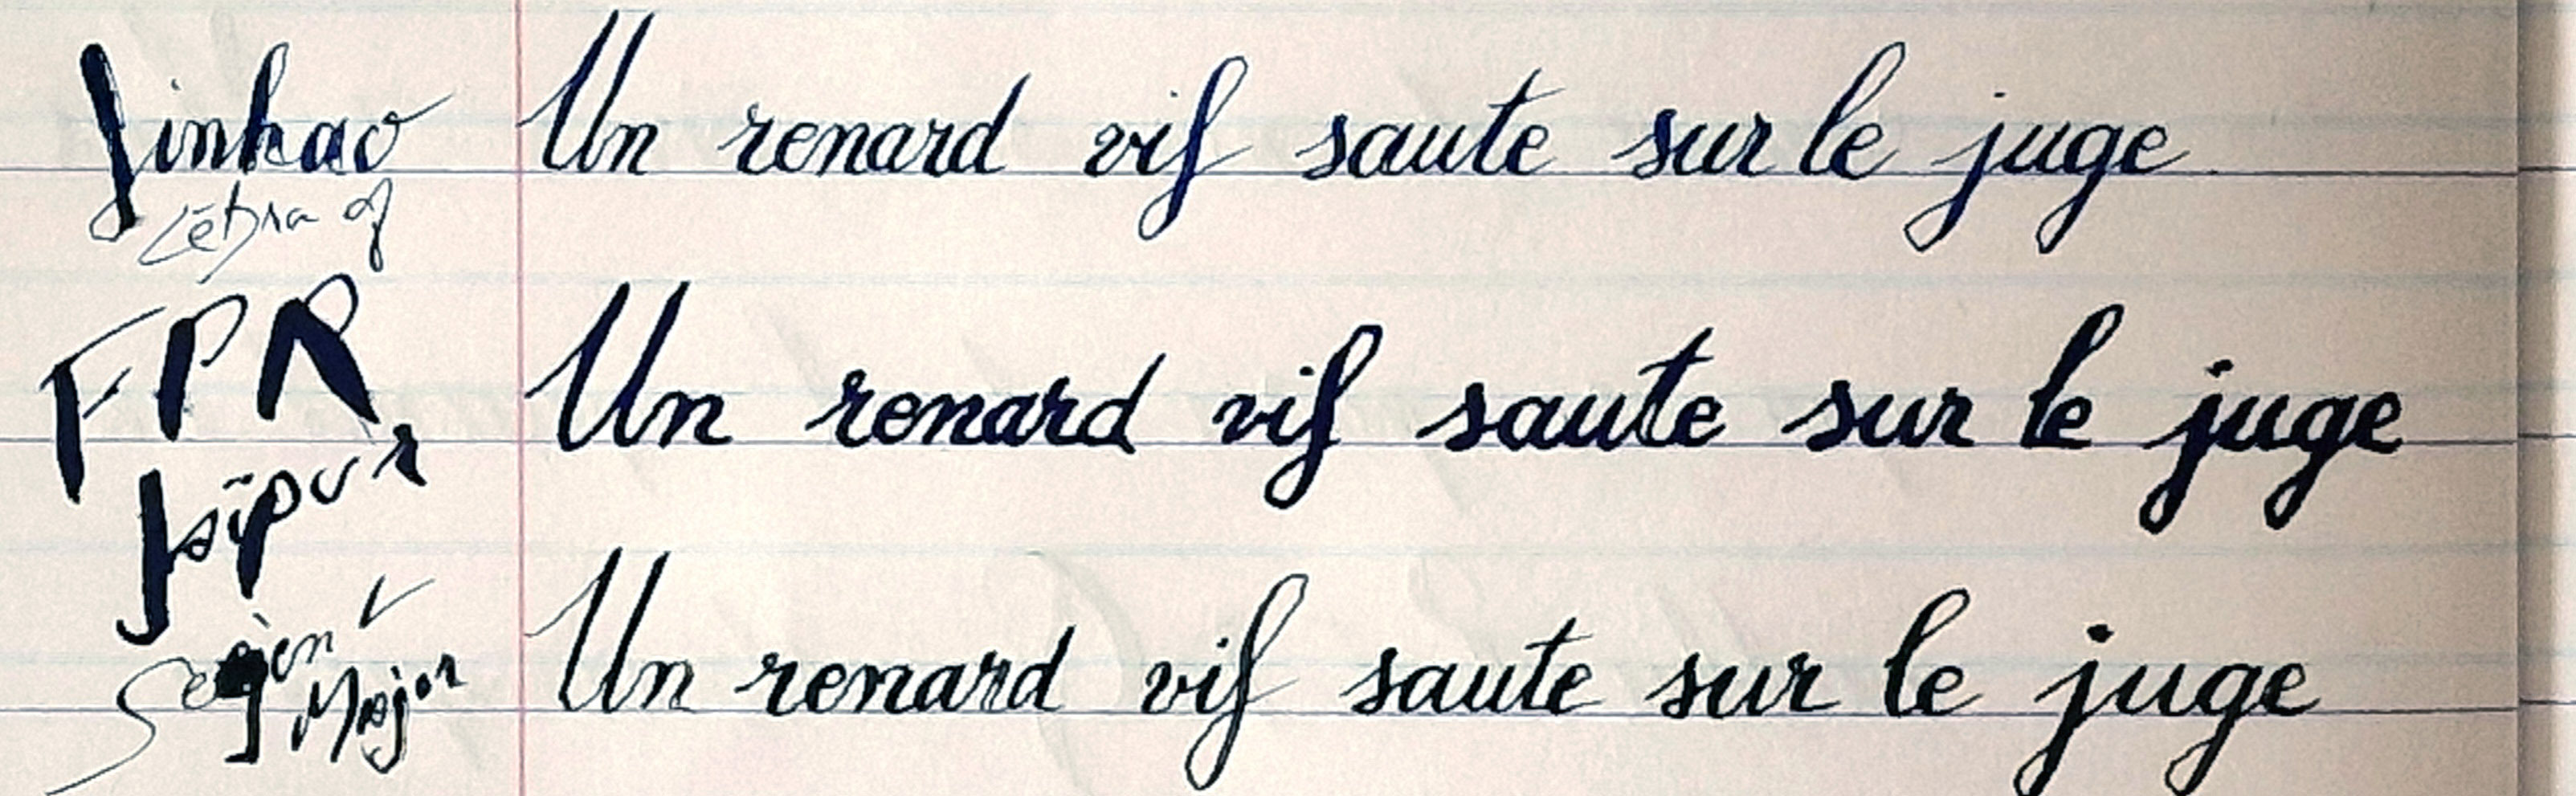 Jinhao Un renard vif saute sur le juge
Zebra G
FPR Un renard vif saute sur le juge
Jaipur
Serjent Un renard vif saute sur le juge
Major